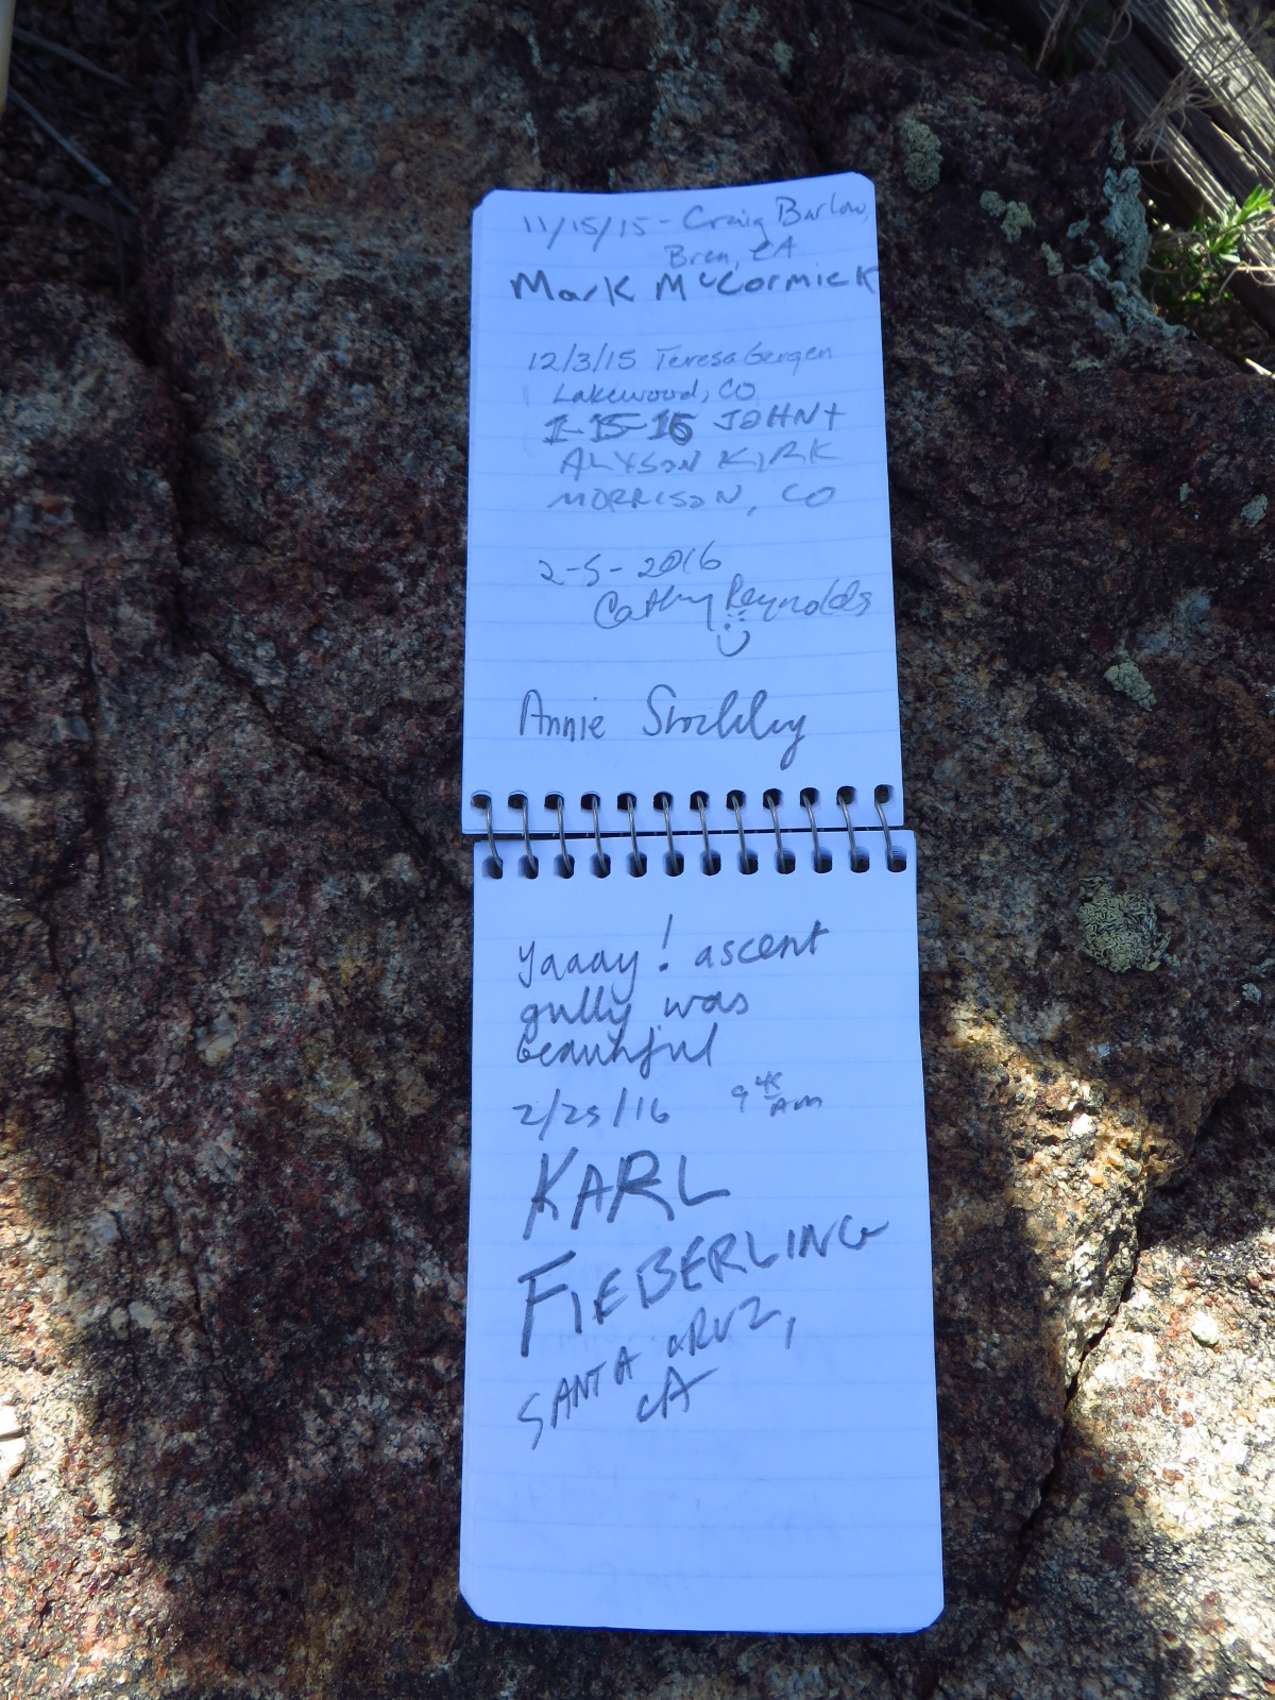 11/15/15 - Craig Barlow,
Brea, CA
Mark McCormick
12/3/15 Teresa Gergen
Lakewood, CO
1-15-16 JOHN +
ALYSON KIRK
MORRISON, CO
2-5-2016
Cathy Reynolds
Annie
yaaay! ascent
gully was
beautiful
2/25/16 9 45 AM
KARL
FIEBERLING
SANTA CRUZ,
CA